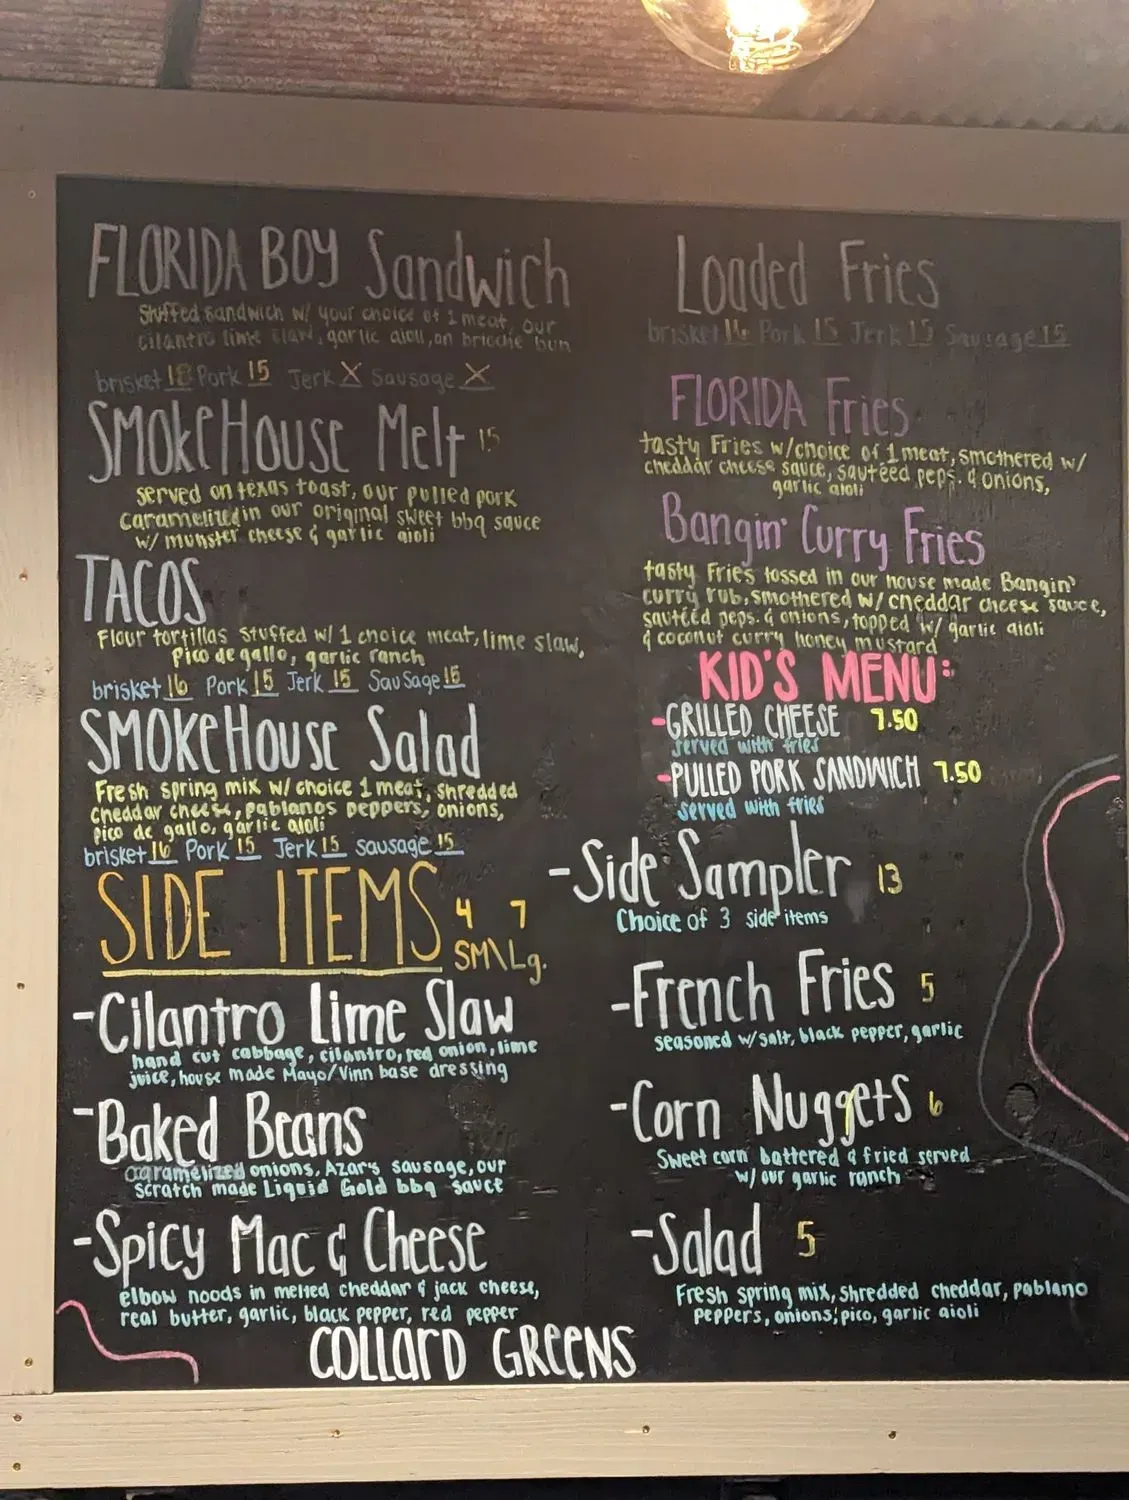 FLORIDA BOY Sandwich
Stuffed sandwich w/ your choice of 1 meat, our
cilantro lime slaw, garlic aioli, on brioche bun
brisket 18 Pork 15 Jerk X Sausage X
SMOKEHOUSE Melt 15
served on texas toast, our pulled pork
caramelized in our original sweet bbq sauce
w/ munster cheese & garlic aioli
TACOS
Flour tortillas stuffed w/ 1 choice meat, lime slaw,
Pico de gallo, garlic ranch
brisket 16 Pork 15 Jerk 15 Sausage 15
SMOKEHOUSE Salad
Fresh spring mix w/ choice 1 meat, shredded
cheddar cheese, pablanos peppers, onions,
pico de gallo, garlic aioli
brisket 16 Pork 15 Jerk 15 sausage 15
SIDE ITEMS 4 7
SM\Lg.
-Cilantro Lime Slaw
hand cut cabbage, cilantro, red onion, lime
juice, house made Mayo/Vinn base dressing
-Baked Beans
caramelized onions, Azar's sausage, our
scratch made Liquid Gold bbq sauce
-Spicy Mac & Cheese
elbow noods in melted cheddar & jack cheese,
real butter, garlic, black pepper, red pepper
COLLARD GREENS
Loaded Fries
brisket 16 Pork 15 Jerk 15 Sausage 15
FLORIDA Fries
tasty Fries w/choice of 1 meat, smothered w/
cheddar cheese sauce, sautéed peps. & onions,
garlic aioli
Bangin' Curry Fries
tasty Fries tossed in our house made Bangin'
curry rub, smothered w/ cheddar cheese sauce,
sautéed peps. & onions, topped w/ garlic aioli
& coconut curry honey mustard
KID'S MENU:
-GRILLED CHEESE 7.50
served with fries
-PULLED PORK SANDWICH 7.50
served with fries
-Side Sampler 13
Choice of 3 side items
-French Fries 5
seasoned w/salt, black pepper, garlic
-Corn Nuggets 6
Sweet corn battered & fried served
w/ our garlic ranch
-Salad 5
Fresh spring mix, shredded cheddar, pablano
peppers, onions, pico, garlic aioli